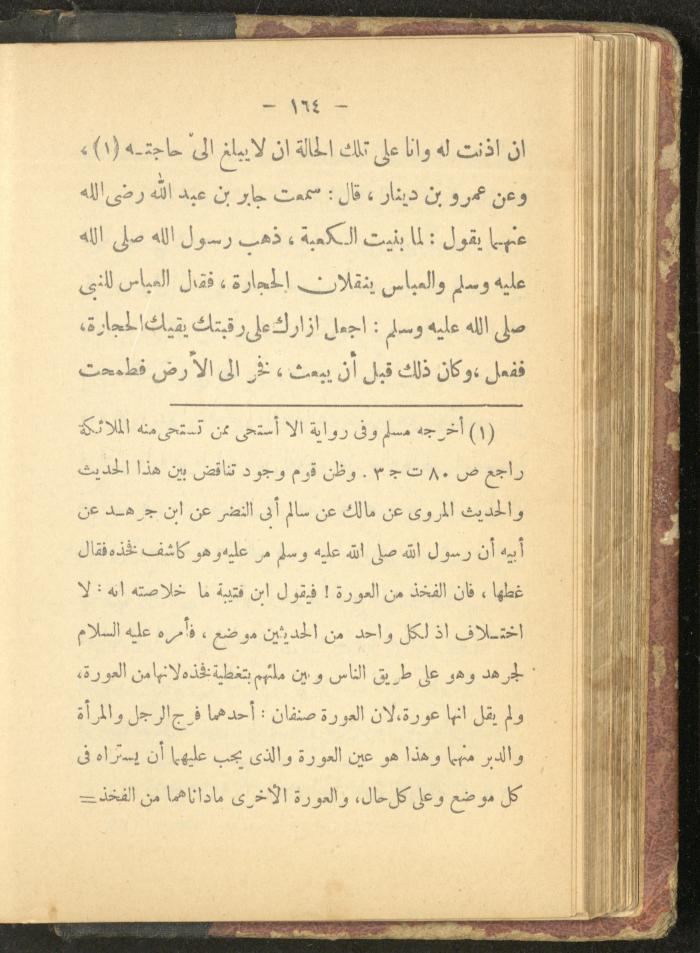 – ١٦٤ –
ان اذنت له وانا على تلك الحالة ان لا يبلغ الى حاجتـه (١) ،
وعن عمرو بن دينار ، قال : سمعت جابر بن عبد الله رضى الله
عنهما يقول : لما بنيت الكعبة ، ذهب رسول الله صلى الله
عليه وسلم والعباس ينقلان الحجارة ، فقال العباس للنبى
صلى الله عليه وسلم : اجعل ازارك على رقبتك يقيك الحجارة،
ففعل ،وكان ذلك قبل أن يبعث ، فخر الى الأرض فطمحت
(١) أخرجه مسلم وفى رواية الا أستحى ممن تستحى منه الملائكة
راجع ص ٨٠ ت ج ٣ . وظن قوم وجود تناقض بين هذا الحديث
والحديث المروى عن مالك عن سالم أبى النضر عن ابن جرهـد عن
أبيه أن رسول الله صلى الله عليه وسلم مر عليه وهو كاشف فخذه فقال
غطها ، فان الفخذ من العورة ! فيقول ابن قتيبة ما خلاصته انه : لا
اختـلاف اذ لكل واحد من الحديثين موضع ، فأمره عليه السلام
لجرهد وهو على طريق الناس وبين ملئهم بتغطية فخذه لانها من العورة،
ولم يقل انها عورة،لان العورة صنفان : أحدهما فرج الرجل والمرأة
والدبر منهما وهذا هو عين العورة والذى يجب عليهما أن يستراه فى
كل موضع وعلى كل حال، والعورة الأخرى ماداناهما من الفخذ =